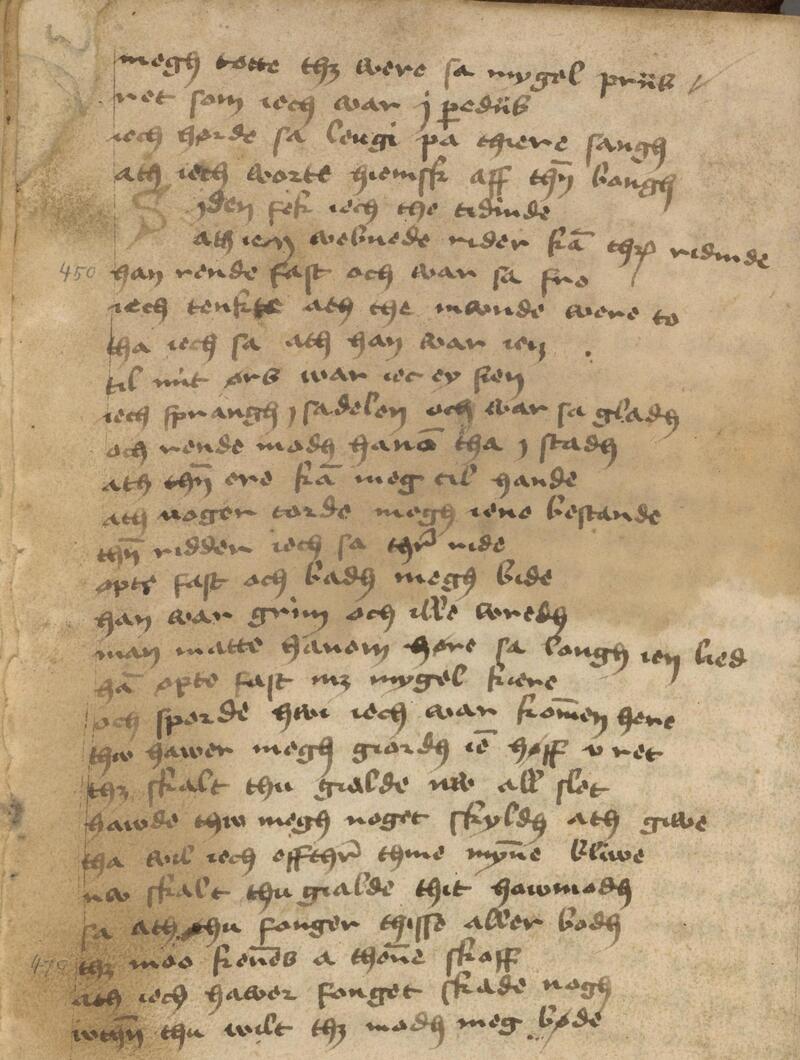 megh totte thz were sa mygel priis
ret som iech war j pediis
iech hørde sa lengi pa thiere sangh
ath iech worte hiemsk aff thñ bangh
Siden fek iech the tidinde
ath ien webnede rider kā thr ridinde
450 han rende fast och war sa fro
iech tenkte ath the mwnde were to
tha iech sa ath han war ien
til mit ørs war iec ey sen
iech sprangh j sadelen och war sa gladh
och rende modh hanō tha j stadh
ath thñ ere kā meg til hande
ath noger torde megh iene bestande
thñ ridder iech sa thr ride
opte fast och badh megh bide
han war grim och ille wredh
man matte hanom høre sa langh ien lied
hā opte fast mz mygel kiere
och sporde hwi iech war komēn here
thw hawer megh giordh iē hoff vret
thz skalt thu gialde nw all slet
hawde thw megh noget skyldh ath giwe
tha wil iech effther thine mȳne bliwe
nw skalt thu gialde thit howmodh
sa ath thu fonger thisse aller bodh
470 thz moo kenēs a thēne skoff
ath iech hawer fonget skade nogh
wthñ thu wilt thz modh meg bøde